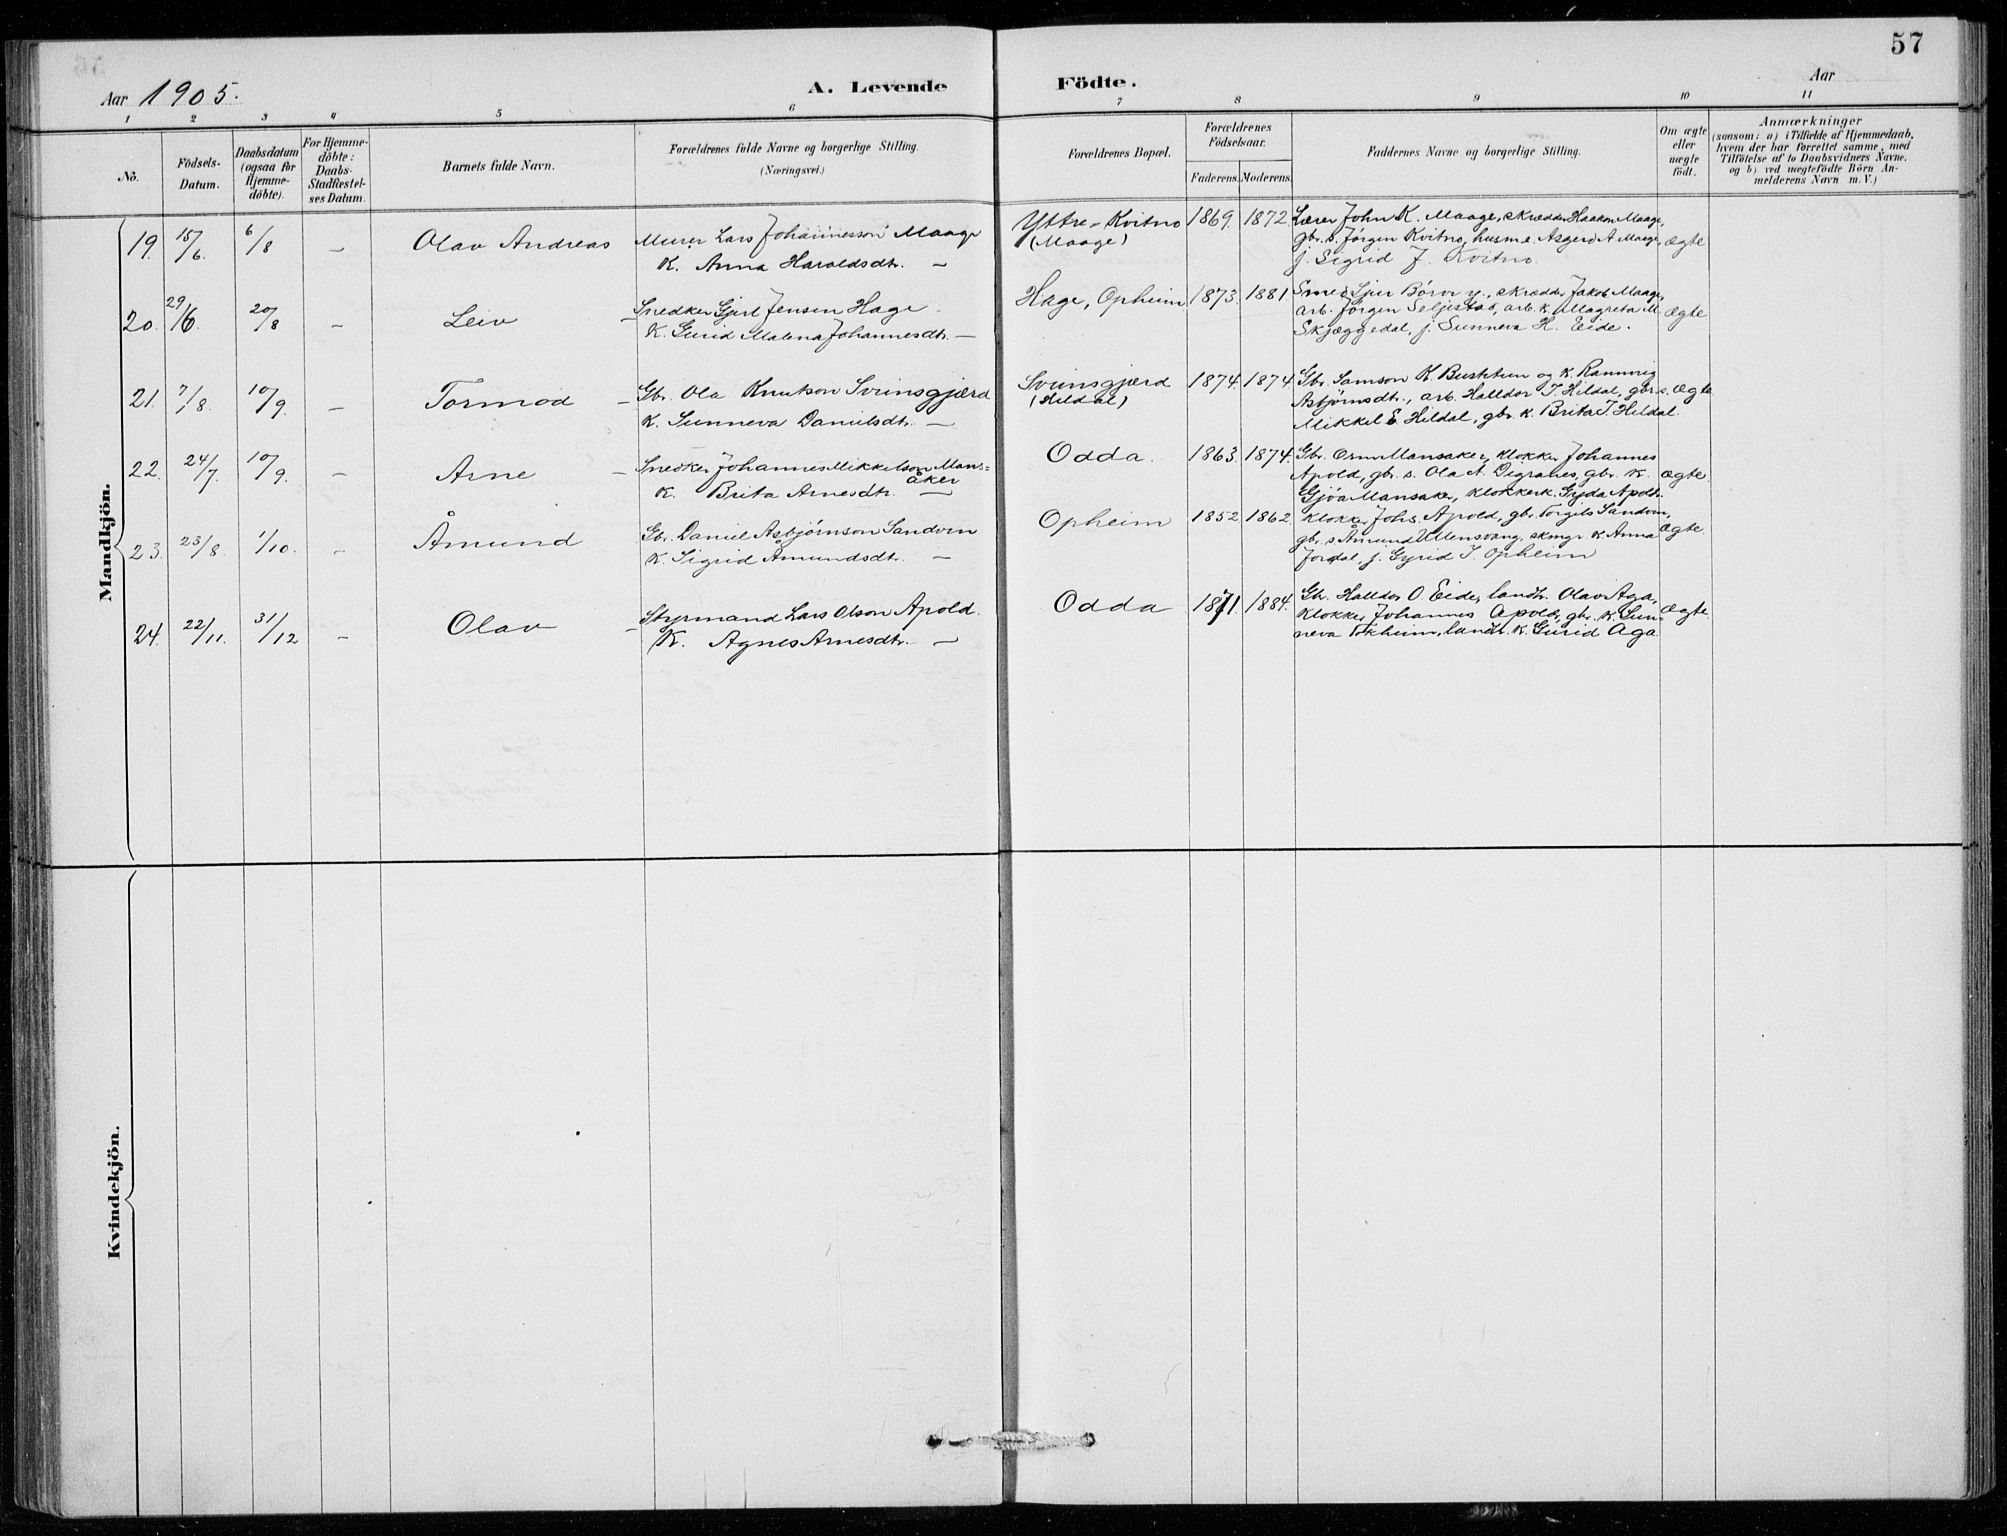 57
Aar 1905.
A. Levende Födte.
Aar
1 2 3 4 5 6 7 8 9 10 11
No.
Födsels-
Datum.
Daabsdatum
(ogsaa for
Hjemme-
döbte).
For Hjemme-
döbte:
Daabs-
Stadfæstel-
ses Datum.
Barnets fulde Navn.
Forældrenes fulde Navne og borgerlige Stilling.
(Næringsvei.)
Forældrenes Bopæl.
Forældrenes
Födselsaar.
Faderens. Moderens.
Faddernes Navne og borgerlige Stilling.
Om ægte
eller
uægte
födt.
Anmærkninger
(saasom: a) i Tilfælde af Hjemmedaab,
hvem der har forrettet samme, med
Tilföielse af to Daabsvidners Navne,
og b) ved uægtefödte Börn An-
melderens Navn m. V.)
Mandkjön.
19. 15/6. 6/8 – Olav Andreas
Murer Lars Johannesson Maage
K. Anna Haraldsdtr. —
Yttre-Kvitno
(Maage)
1869. 1872.
Lærer John K. Maage, skrædder Haakon Maage,
gbr. s. Jörgen Kvitno, husm.e. Asgerd A Maage,
j. Sigrid J. Kvitno.
ægte
20. 29/6. 20/8 – Leiv –
Snedker Gjert Jensen Hage
K. Gurid Malena Johannesdtr. —
Hage, Opheim
1873. 1881
Smed Sjur Börve y., skrædder Jakob Maage,
arb. Jörgen Seljestad, arb. k. Magreta M.
Skjæggedal, j. Sunneva H. Eide.
ægte
21. 7/8. 10/9. – Tormod –
Gbr. Ola Knutson Svinsgjærd
K. Sunneva Danielsdtr. —
Svinsgjærd
(Hildal)
1874. 1874
Gbr. Samson K. Bustetun og K. Rannveig
Asbjörnsdtr., arb. Halldor T. Hildal, gbr. s.
Mikkel E. Hildal, gbr. k. Brita T. Hildal.
Ægte
22. 24/7. 10/9. – Arne –
Snedker Johannes Mikkelson Mans-
åker
K. Brita Arnesdtr. —
Odda.
1863. 1874.
Gbr. Orm Mansaker, Klokker Johannes
Apold, gbr. s. Ola A. Digranes, gbr. K.
Gjöa Mansaker, klokkerk. Gyda Apold.
ægte.
23. 23/8. 1/10. – Åmund
Gbr. Daniel Asbjörnson Sandven
K. Sigrid Åmundsdtr. —
Opheim
1852 1862
Klokker Johs. Apold, gbr. Torgils Sandven,
gbr. s Åmund Ullensvang, skmgr. K. Anna
Jordal, j. Gyrid I. Opheim
Ægte.
24. 22/11. 31/12 – Olav –
Styrmand Lars Olson Apold.
K. Agnes Arnesdtr. —
Odda
1871. 1884.
Gb. Halldor O. Eide, landh. Olav Aga,
Klokker Johannes Apold, gbr. K. Sun-
neva Tokheim, landh. K. Gurid Aga.
Ægte.
Kvindekjön.